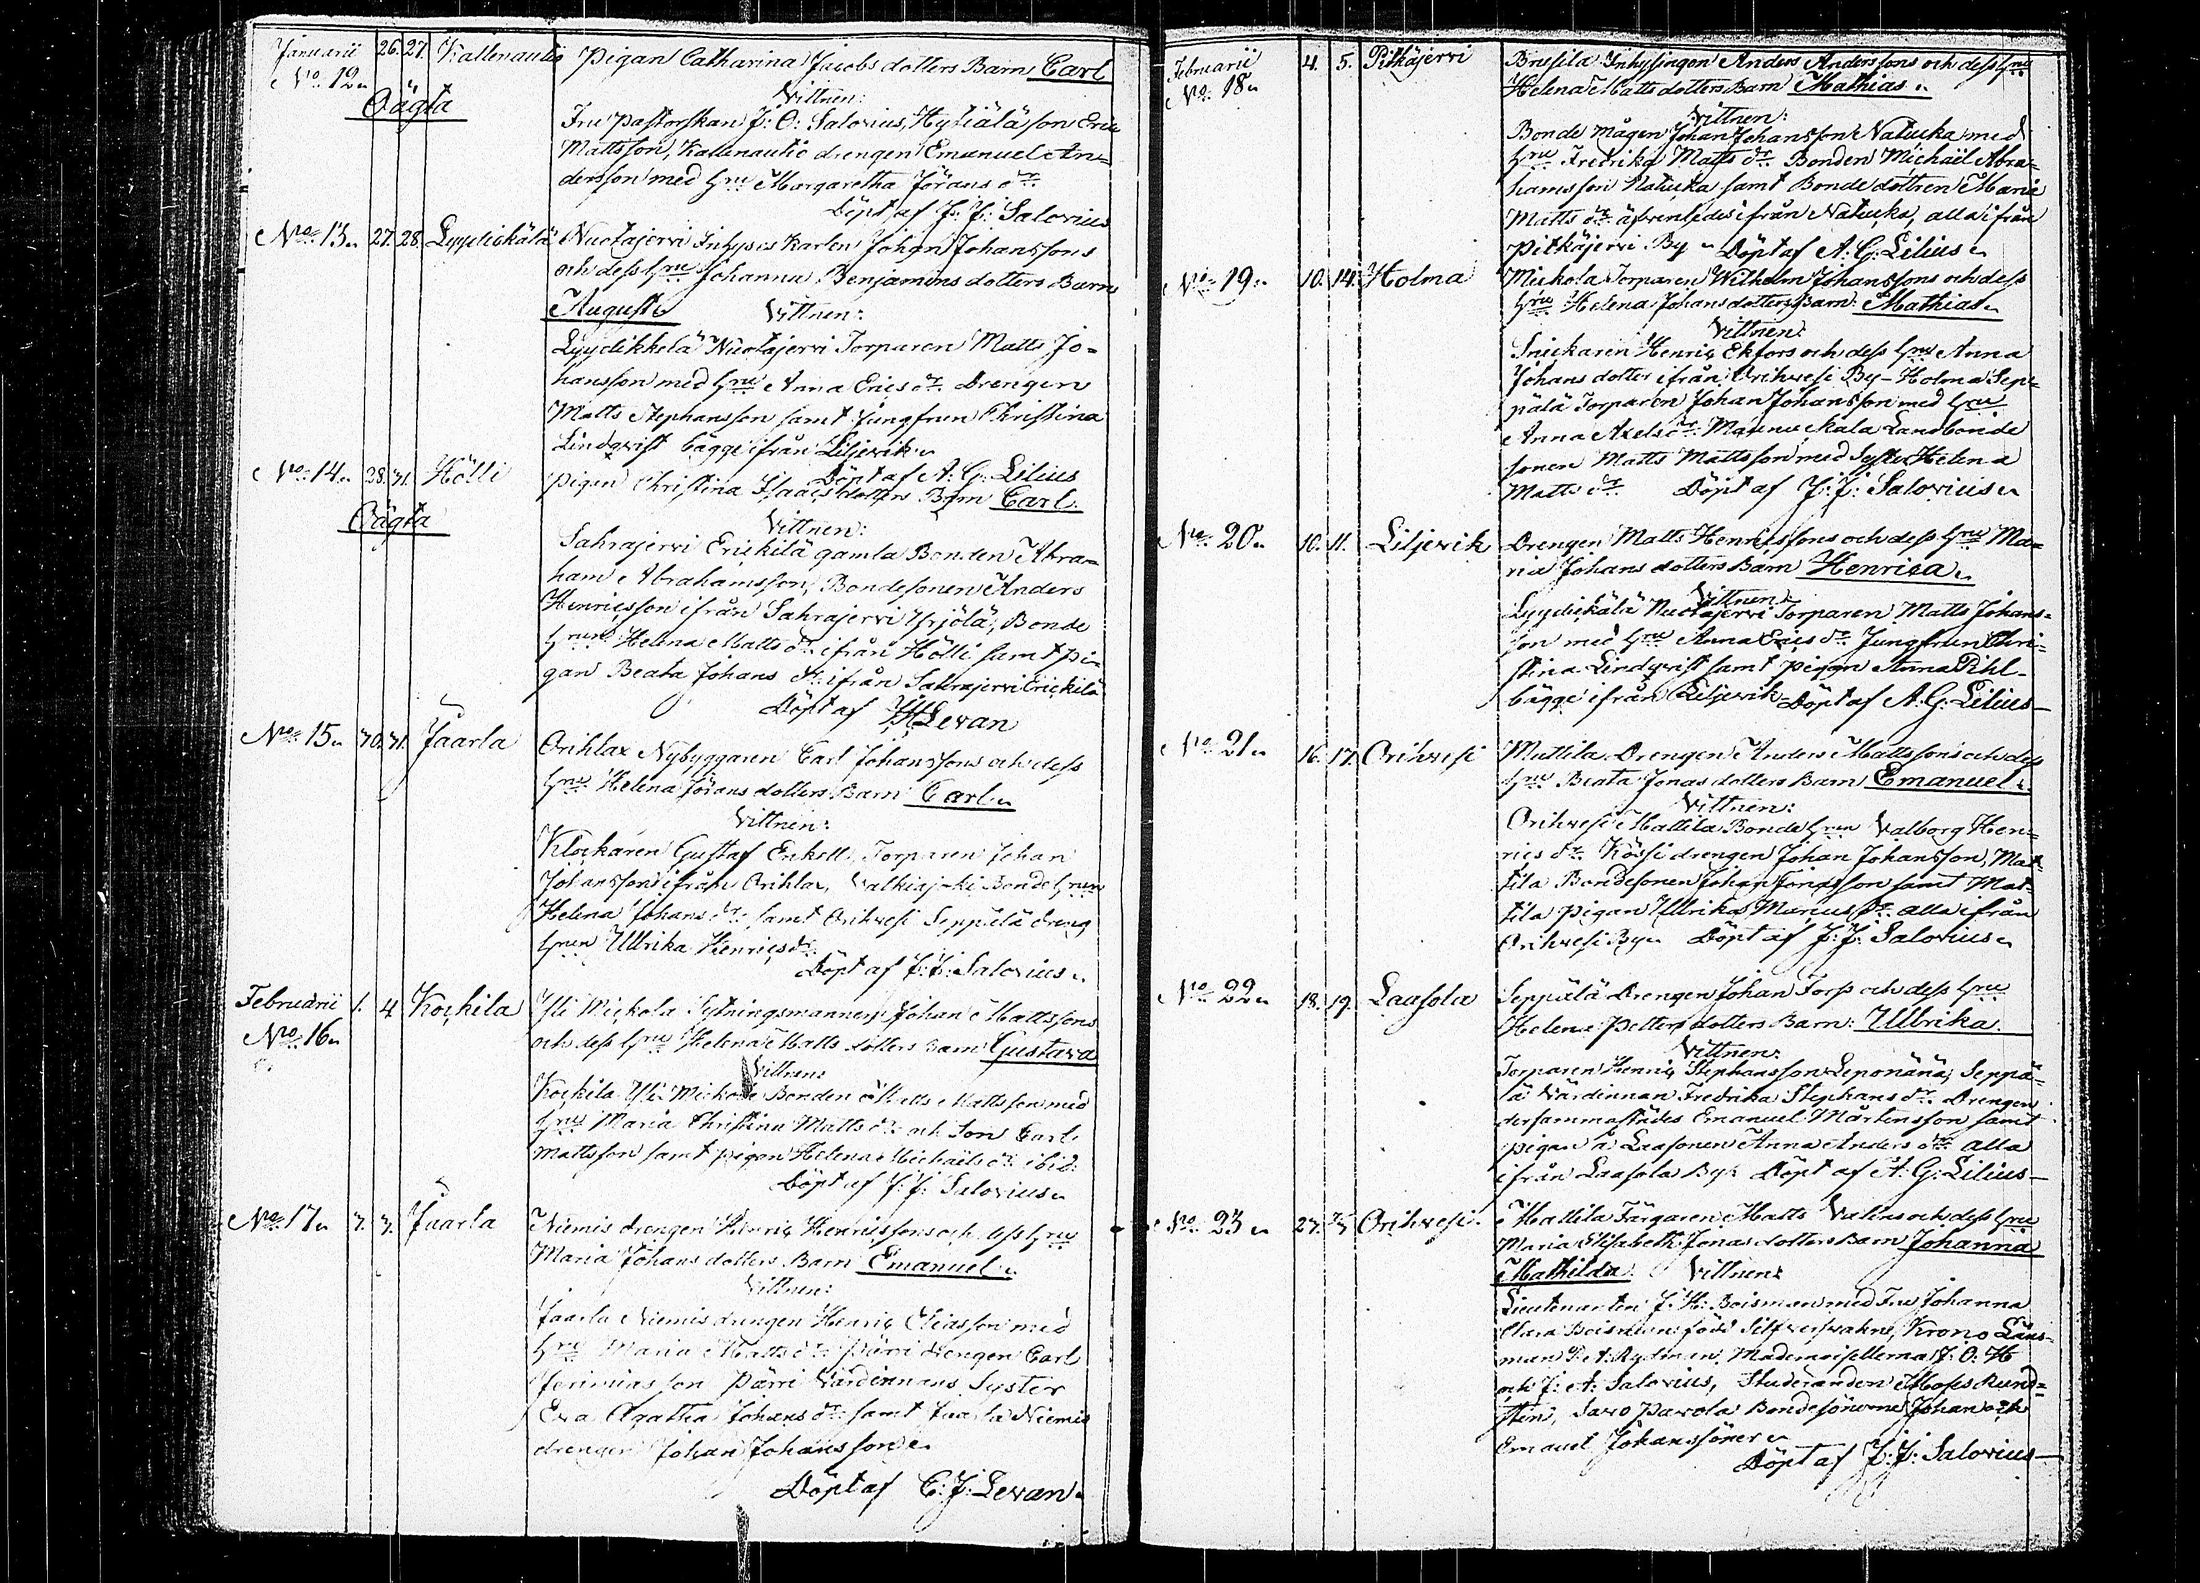 Januarii 26. 27. Kallenautio Pigan Catharina Jacobs dotters Barn Carl
No. 12.
Oägta
Vittnen:
Fru Pastorskan J: O: Salovius, Hytiälä son Eric
Mattsson, Kallenautio drengen Emanuel An=
dersson med Hru Margaretha Jörans dr.
Döpt af J: J: Salovius
No. 13. 27. 28. Lyydickälä Nuotajervi Inhyses Karlen Johan Johanssons
och dess Hru Johanna Benjamins dotters Barn
August
Vittnen:
Lyydikkelä Nuotajervi Torparen Matts Jo=
hansson med Hru Anna Erics dr. Drengen
Matts Stephansson samt Jungfrun Christina
Lindqvist bägge ifrån Liljevik
Döpt af A: G: Lilius
No. 14. 28. 31. Hölli Pigan Christina Isaacs dotters Barn Carl.
Oägta
Vittnen:
Sahrajervi Erickilä gamla Bonden Abra=
ham Abrahamsson, Bondesonen Anders
Henricsson ifrån Sahrajervi Yrjölä, Bonde
Hrun Helena Matts dr. ifrån Hölli samt pi=
gan Beata Johans dr. ifrån Sahrajervi Erickilä
Döpt af Levan
No. 15. 30. 31. Jaarla Orihlax Nybyggaren Carl Johanssons och dess
Hru Helena Jörans dotters Barn Carl
Vittnen:
Klockaren Gustaf Enkell, Torparen Johan
Johansson ifrån Orihlax, Valkiajoki Bonde Hrun
Helena Johans dr. samt Orihvesi Seppälä dreng
Hrun Ullrika Henrics dr.
Döpt af J: J: Salovius
Februarii 1. 4 Kockila Yli Mickola Sytningsmannen Johan Mattssons
No. 16. och dess Hru Helena Matts dotters Barn Gustava
Vittnen:
Kockila Yli Mickola Bonden Matts Mattsson med
Hru Maria Christina Matts dr. och Son Carl
Mattsson samt pigan Helena Michaels dr. ibid:
Döpt af J: J: Salovius
No. 17. 3. 3. Jaarla Niemis drengen Henric Henricssons och dess Hru
Maria Johans dotters Barn Emanuel
Vittnen:
Jaarla Niemis drengen Henric Eliasson med
Hru Maria Matts dr. Pärri drengen Carl
Jerimiasson Pärri Värdinnans Syster
Eva Agatha Johans dr. samt Jaarla Niemis
drengen Johan Johansson
Döpt af C: J: Levan
Februarii 4. 5. Pitkäjervi Inhysingen Anders Anderssons och dess Hru
No. 18. Helena Matts dotters Barn Mathias
Vittnen:
Bonde mågen Johan Johansson Natucka med
Hru Fredrika Matts dr. Bonden Michaël Abra=
hamsson Natucka samt Bonde dottren Maria
Matts dr. äfvenledes ifrån Natucka, alla ifrån
Pitkäjervi By Döpt af A: G: Lilius
No. 19. 10. 14. Holma Mickola Torparen Wilhelm Johanssons och dess
Hru Helena Johans dotters Barn Mathias
Vittnen:
Snickaren Henric Ekfors och dess Hru Anna
Johans dotter ifrån Orihvesi By - Holma Sep=
pälä Torparen Johan Johansson med Hru
Anna Axels dr. Landbonde
sonen Matts Mattsson med Syster Helena
Matts dr. Döpt af J: J: Salovius
No. 20. 10. 11. Liljevik Drengen Matts Henricssons och dess Hru Ma=
ria Johans dotters Barn Henrica
Vittnen:
Lyydickälä Nuotajervi Torparen Matts Johans=
son med Hru Anna Erics dr. Jungfrun Chri=
stina Lindqvist samt pigan Anna Pihl
bägge ifrån Liljevik Döpt af A: G: Lilius
No. 21. 16. 17. Orihvesi Mattila Drengen Anders Mattssons och dess
Hru Beata Jonas dotters Barn Emanuel
Vittnen:
Orihvesi Mattila Bonde Hrun Valborg Hen=
rics dr. Kössi drengen Johan Johansson, Mat=
tila Bondesonen Johan Jonasson samt Mat=
tila pigan Ullrika Marcus dr. alla ifrån
Orihvesi By Döpt af J: J: Salovius
No. 22. 18. 19. Laasola Seppälä Drengen Johan Forss och dess Hru
Helena Petters dotters Barn: Ullrika.
Vittnen:
Torparen Henric Stephansson Leponänä, Seppä=
lä Värdinnan Fredrika Stephans dr. Drengen
dersammastädes Emanuel Mårtensson samt
pigan å Laasonen Anna Anders dr. alla
ifrån Laasola By. Döpt af A: G: Lilius
No. 23. 23. Orihvesi Mattila Färgaren Matts Valins och dess Hru
Maria Elisabeth Jonas dotters Barn Johanna
Mathilda Vittnen:
Lieutenanten J: H: Boisman med Fru Johanna
Clara Boisman född Silfversvahn, Krono Läns=
man Rydman, Mademoisellerna J: O: H
och J: A: Salovius, Studeranden Moses Rund=
sten, Savo Pavola Bondesönerne Johan och
Emanuel Johanssöner
Döpt af J: J: Salovius